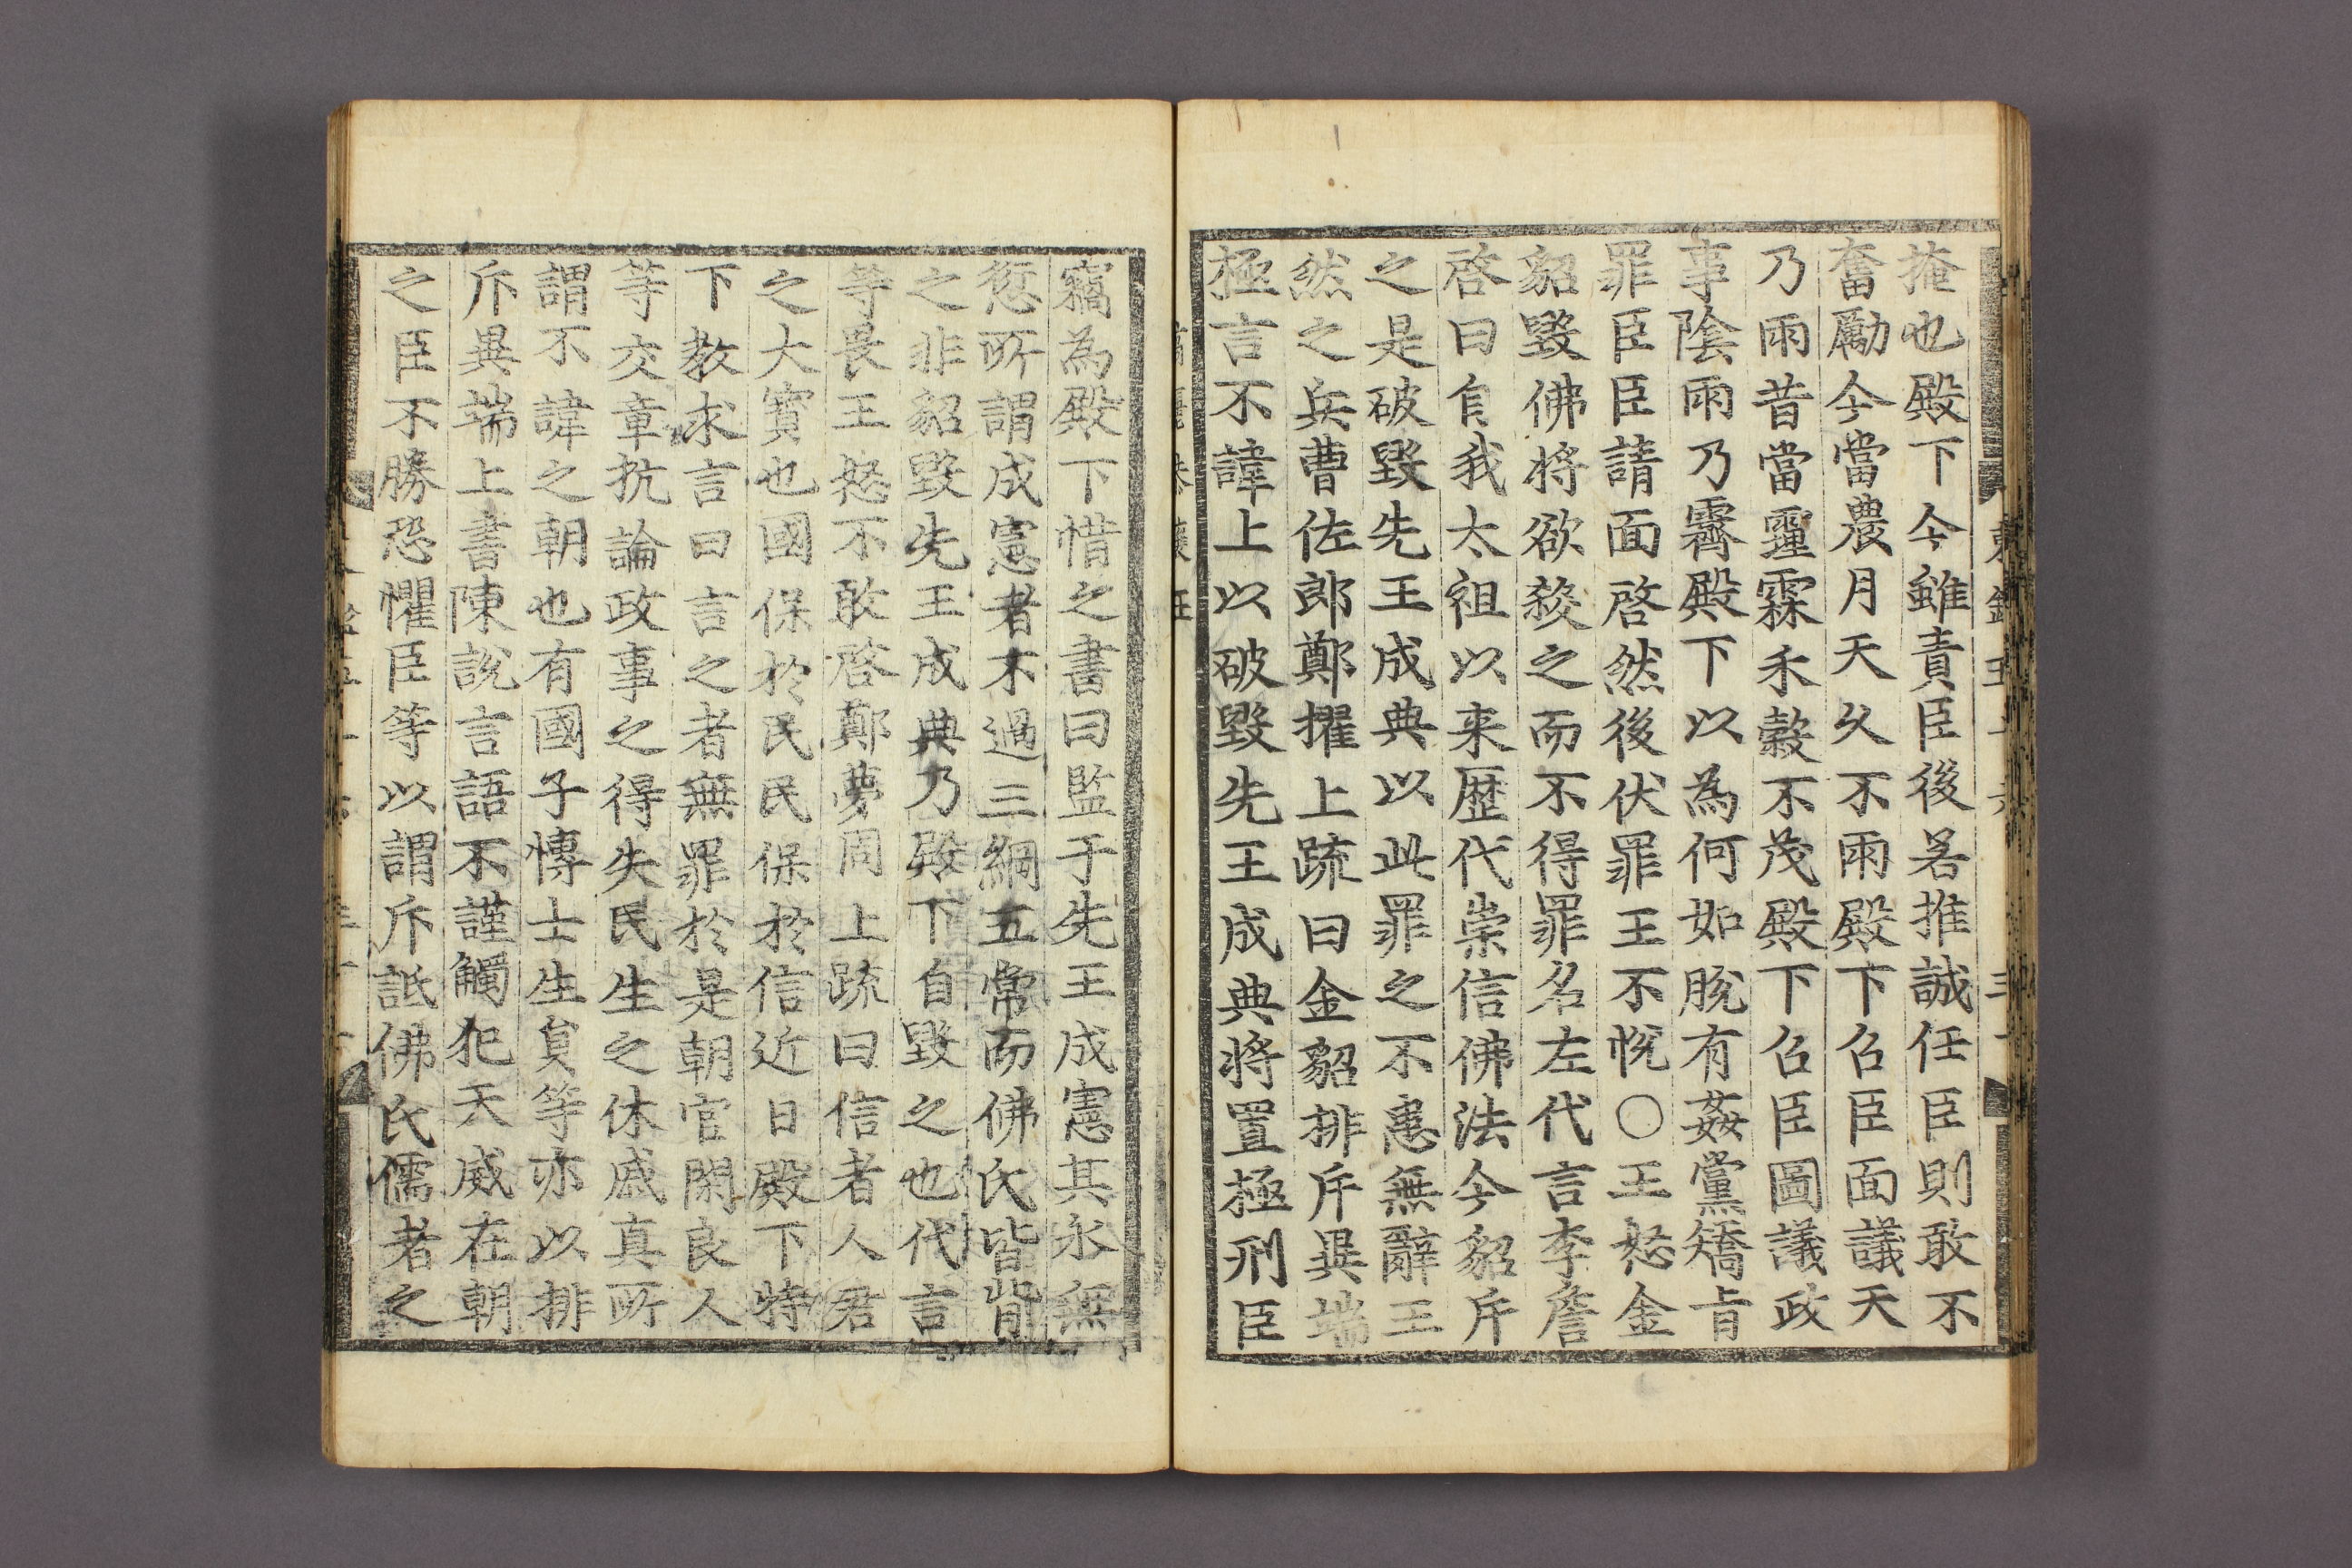 掩也殿下今雖責臣後畧推誠任臣則敢不
奮勵今當農月天久不雨殿下召臣面議天
乃雨昔當霾霖禾穀不茂殿下召臣圖議政
事陰雨乃霽殿下以為何如脫有姦黨矯旨
罪臣臣請面啓然後伏罪王不恱〇王怒金
貂毀佛將欲殺之而不得罪名左代言李詹
啓曰自我太祖以来歷代崇信佛法今貂斥
之是破毀先王成典以此罪之不患無辭王
然之兵曹佐郎鄭擢上疏曰金貂排斥異端
極言不諱上以破毀先王成典將置極刑臣
竊為殿下惜之書曰監于先王成憲其永無
愆所謂成憲者不過三綱五常而佛氏皆背
之非貂毀先王成典乃殿下自毀之也代言
等畏王怒不敢啓鄭夢周上疏曰信者人君
之大寶也國保於民民保於信近日殿下特
下教求言曰言之者無罪於是朝官閑良人
等交章抗論政事之得失民生之休戚真所
謂不諱之朝也有國子博士生員等亦以排
斥異端上書陳說言語不謹觸犯天威在朝
之臣不勝恐懼臣等以謂斥詆佛氏儒者之